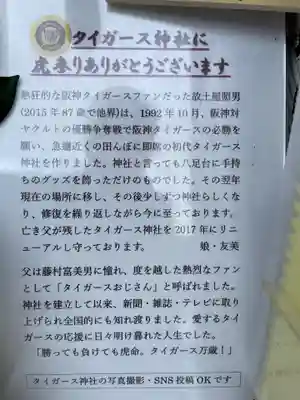 タイガース神社に
虎来りありがとうございます
熱狂的な阪神タイガースファンだった故土屋照男
(2015年87歳で他界)は、1992年10月、阪神対
ヤクルトの優勝争奪戦で阪神タイガースの必勝を
願い、急遽近くの田んぼに即席の初代タイガース
神社を作りました。神社と言っても八足台に手持
ちのグッズを飾っただけのものでした。その翌年
現在の場所に移し、その後少しずつ神社らしくな
り、修復を繰り返しながら今に至っております。
亡き父が残したタイガース神社を2017年にリニ
ューアルし守っております。 娘・友美
父は藤村富美男に憧れ、度を越した熱烈なファン
として「タイガースおじさん」と呼ばれました。
神社を建立して以来、新聞・雑誌・テレビに取り
上げられ全国的にも知れ渡りました。愛するタイ
ガースの応援に日々明け暮れた人生でした。
「勝っても負けても虎命。タイガース万歳!」
タイガース神社の写真撮影・SNS投稿OKです